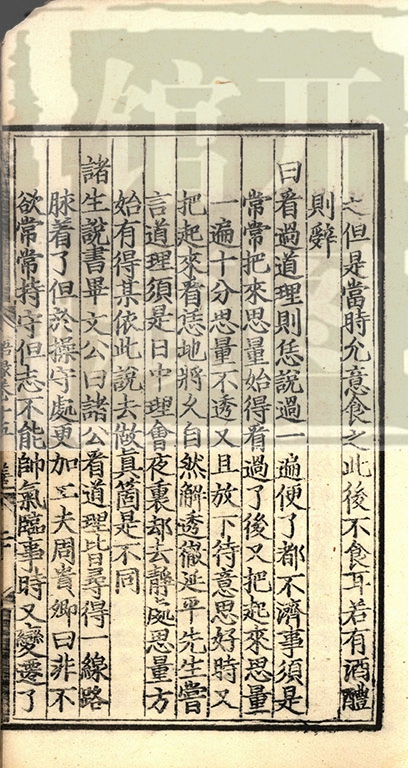 之但是當時允意食之此後不食耳若有酒醴
則辭
曰看過道理則恁說過一遍便了都不濟事須是
常常把來思量始得看過了後又把起來思量
一遍十分思量不透又且放下待意思好時又
把起來看恁地將久自然解透徹延平先生嘗
言道理須是日中理會夜裏却去靜處思量方
始有得某依此說去做真箇是不同
諸生說書畢文公曰諸公看道理皆尋得一線路
脉着了但於操守處更加工夫周貴卿曰非不
欲常常持守但志不能帥氣臨事時又變遷了